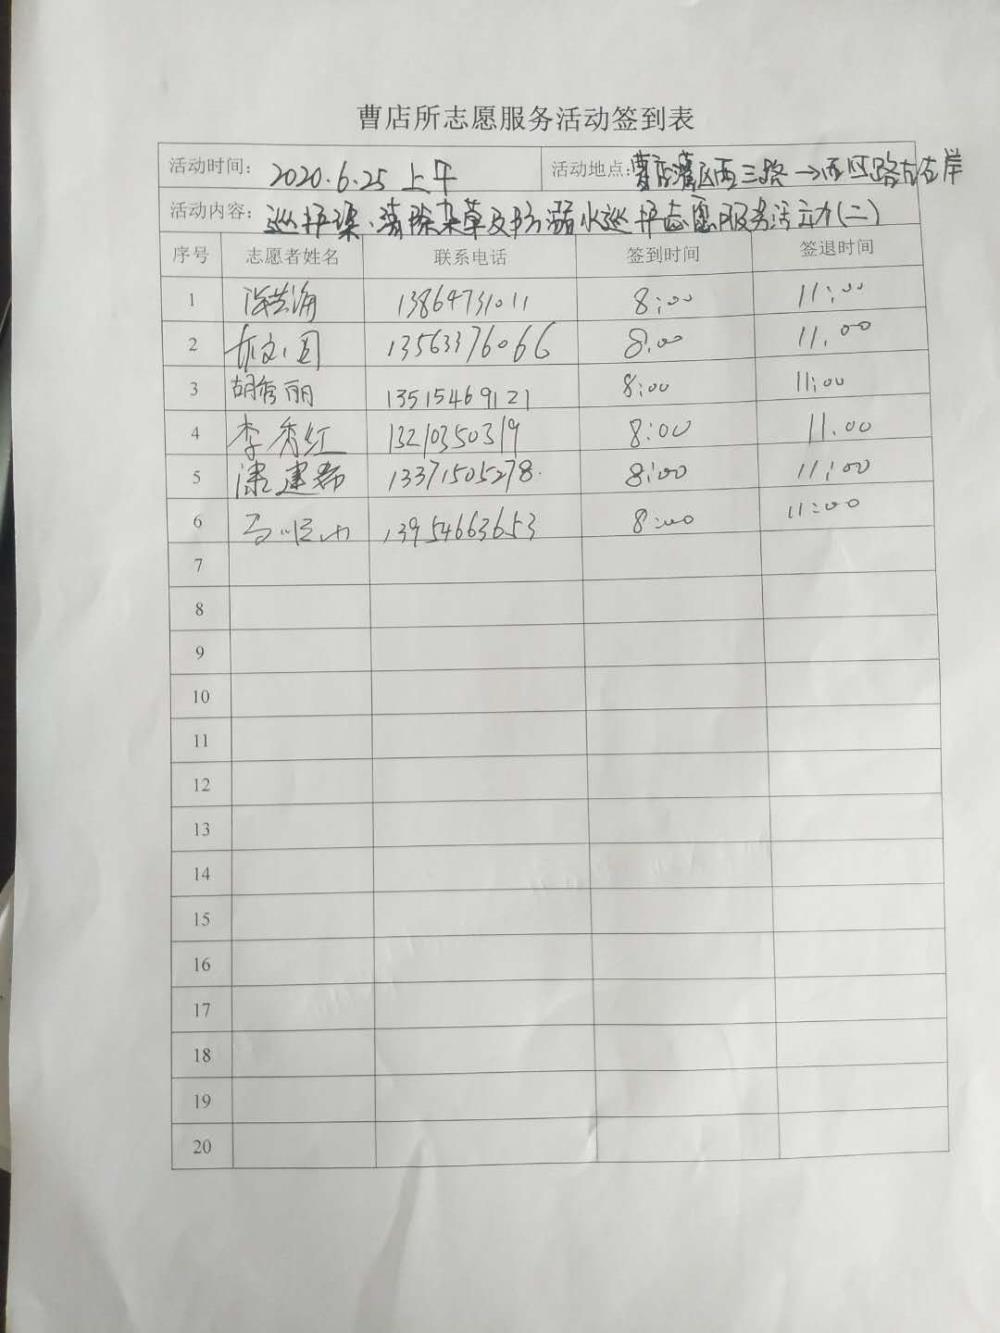 曹店所志愿服务活动签到表
活动时间: 2020.6.25 上午 活动地点: 曹店灌区西三路→西四路左右岸
活动内容: 巡护渠、清除杂草及防溺水巡护志愿服务活动(二)
序号 志愿者姓名 联系电话 签到时间 签退时间
1 13864731011 8:00 11:00
2 13563376066 8:00 11:00
3 胡秀丽 13515469121 8:00 11:00
4 李秀红 13210350319 8:00 11.00
5 建 13371505278 8:00 11:00
6 13954663653 8:00 11:00
7
8
9
10
11
12
13
14
15
16
17
18
19
20